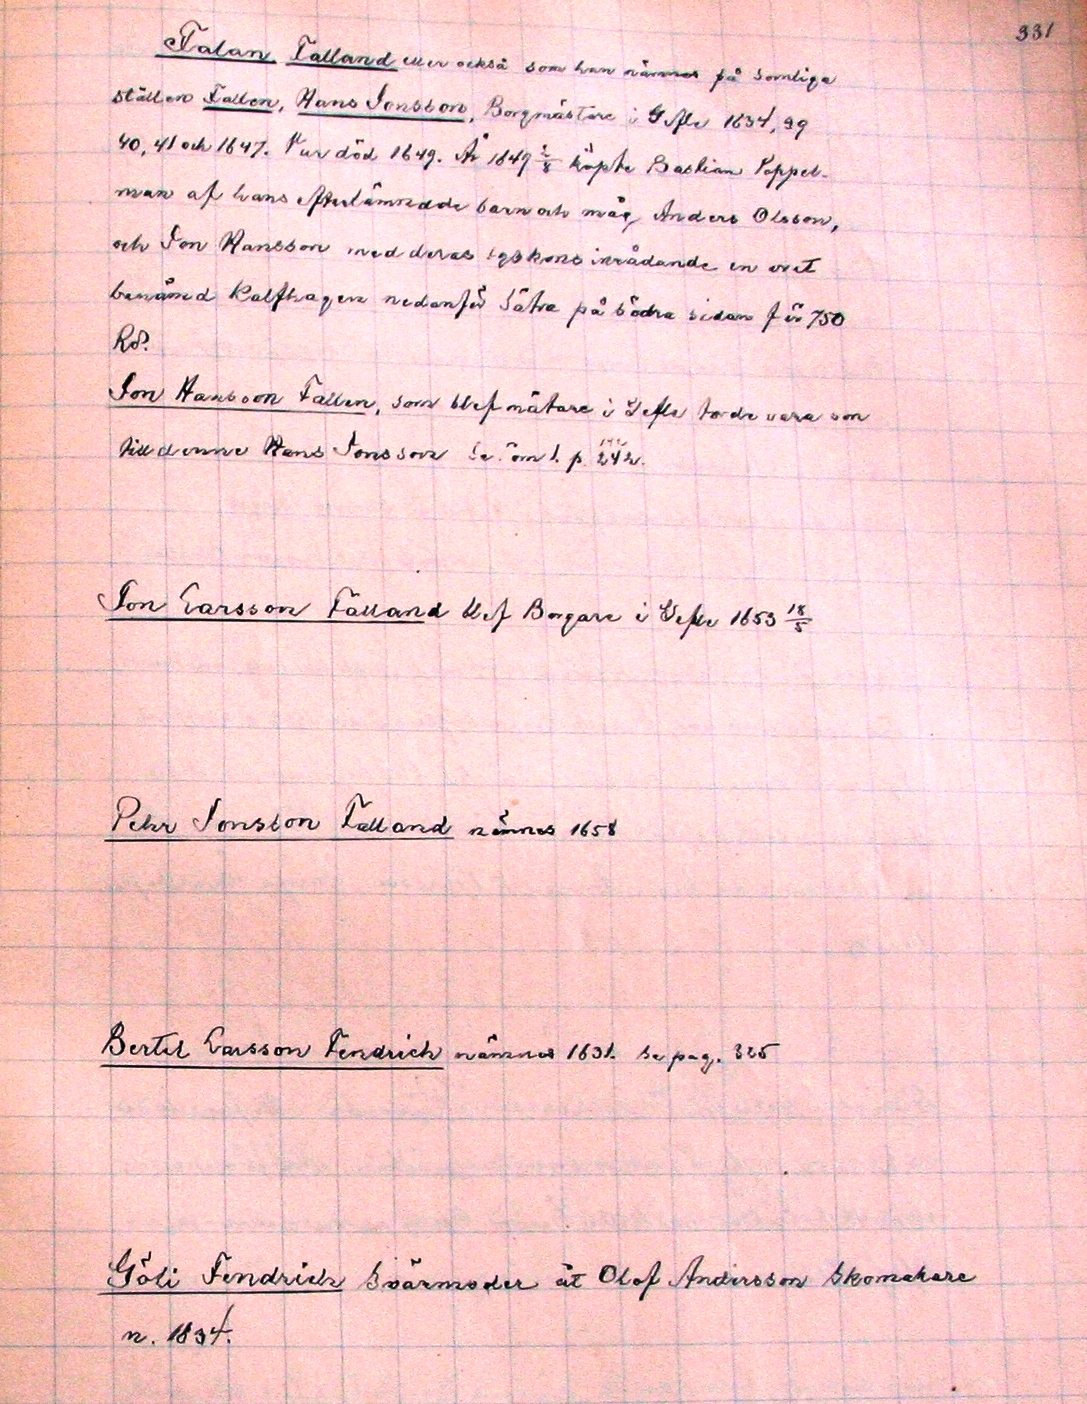 331
Falan, Falland eller också som han nämnes på somliga
ställen Fallen, Hans Jonsson, Borgmästare i Gefle 1634, 39
40, 41 och 1647. Var död 1649. År 1649 2/8 köpte Bastian Poppel-
man af hans efterlämnade barn och måg Anders Olsson,
och Jon Hansson med deras syskons inrådande en vret
benämd Kalfhagen nedanför Sätra på södra sidan för 750
Rd.
Jon Hansson Fallen, som blef mätare i Gefle torde vara son
till denne Hans Jonsson Se p. 242.
Jon Larsson Fälland blef Borgare i Gefle 1653 18/5
Pehr Jonsson Falland nämnes 1658
Bertil Larsson Fendrich nämnes 1631. Se pag. 325
Göli Fendrich Svärmoder åt Olof Andersson Skomakare
n. 1634.